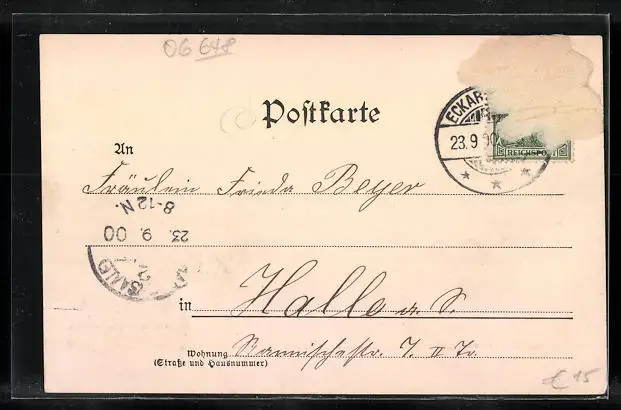 06 648
Postkarte
ECKAR
23.9.00
REICHSPO
An
Fräulein Frieda Beyer
8-12 N.
23. 9. 00
(SAALE)
in Halle a. S.
Wohnung
(Straße und Hausnummer)
7. II Tr.
€ 15